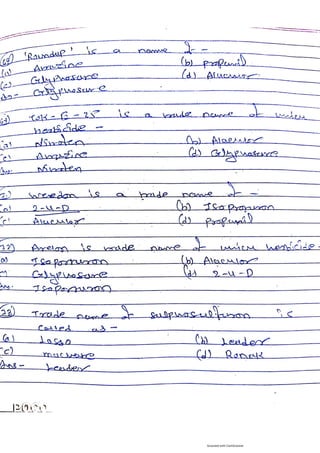 'Roundup' is a name of -
(a) Atrazine (b) propanil
(c) Glyphosate (d) Alachlor
Ans - Glyphosate
TOK-E-25 is a trade name of which
herbicide -
(a) Nitrofen (b) Alachlor
(c) Atrazine (d) Glyphosate
Ans. Nitrofen
Weedon is a trade name of -
(a) 2-4-D (b) Isoproturon
(c) Alachlor (d) propanil
Arelon is trade name of which herbicide -
(a) Isoproturon (b) Alachlor
Glyphosate (d) 2-4-D
Ans. Isoproturon
Trade name of sulphosulfuron is
called as -
(a) Lasso (b) Leader
(c) machete (d) Ronak
Ans - Leader
Scanned with CamScanner